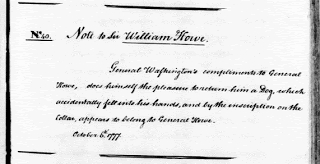 No. 40. Note to Sir William Howe.
General Washington's compliments to General
Howe, does himself the pleasure to return him a Dog, which
accidentally fell into his hands, and by the inscription on the
Collar, appears to belong to General Howe.
October 6th. 1777.